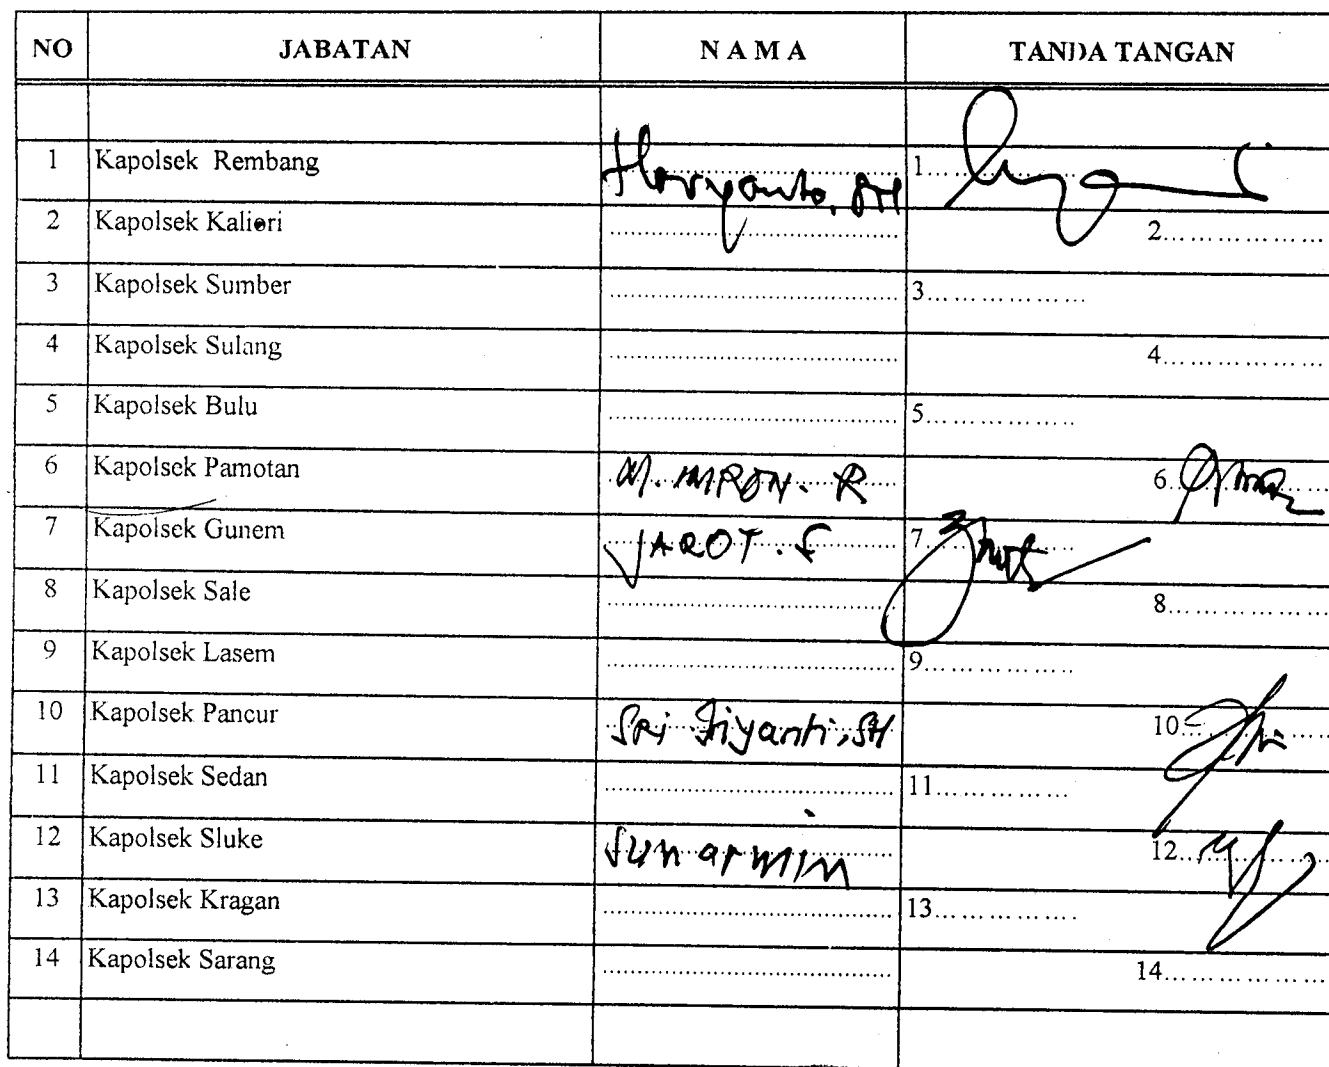 NO JABATAN N A M A TANDA TANGAN
1 Kapolsek Rembang Haryanto, SH 1...............
2 Kapolsek Kaliori .............................. 2...............
3 Kapolsek Sumber .............................. 3...............
4 Kapolsek Sulang .............................. 4...............
5 Kapolsek Bulu .............................. 5...............
6 Kapolsek Pamotan M. IMRON. R 6...............
7 Kapolsek Gunem JAROT. S 7...............
8 Kapolsek Sale .............................. 8...............
9 Kapolsek Lasem .............................. 9...............
10 Kapolsek Pancur Sri, SH 10...............
11 Kapolsek Sedan .............................. 11...............
12 Kapolsek Sluke Sunarmin 12...............
13 Kapolsek Kragan .............................. 13...............
14 Kapolsek Sarang .............................. 14...............